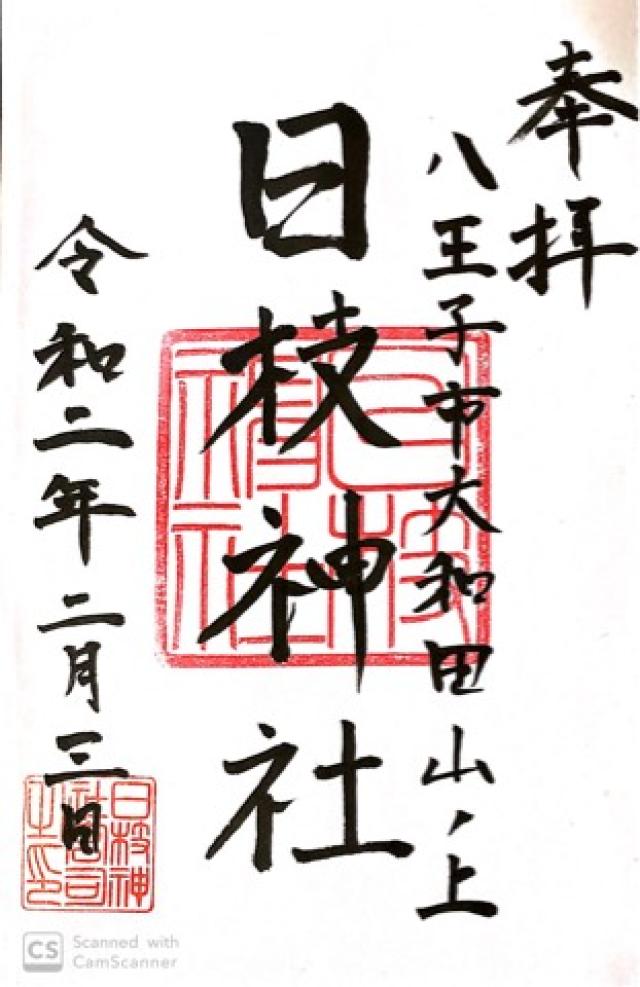 奉拝
八王子市大和田山ノ上
日枝神社
令和二年二月三日
日枝神社
日枝神
社宮司
之印
CS Scanned with
CamScanner